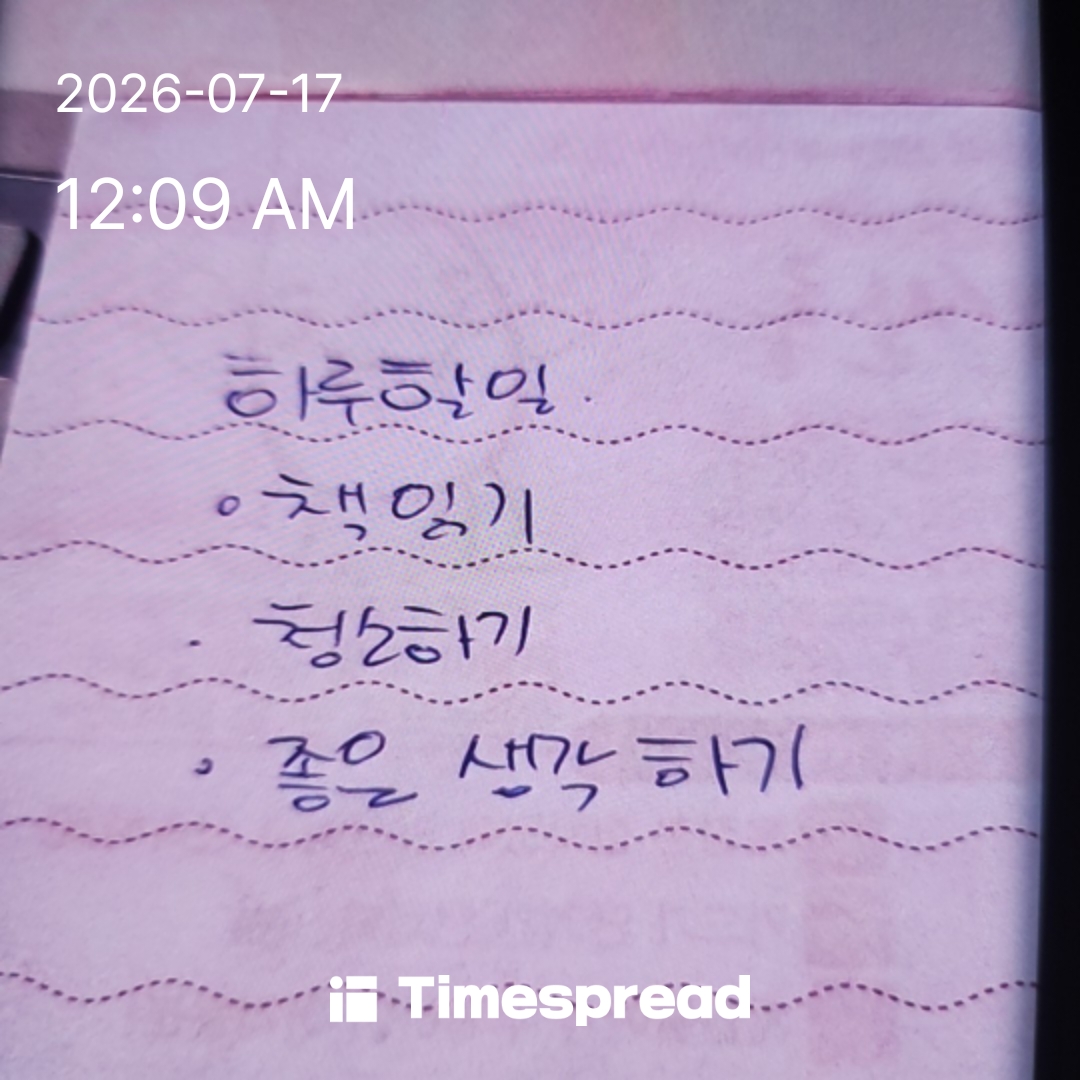 2026-07-17
12:09 AM
하루할일.
○ 책읽기
· 청소하기
· 좋은 생각하기
Timespread